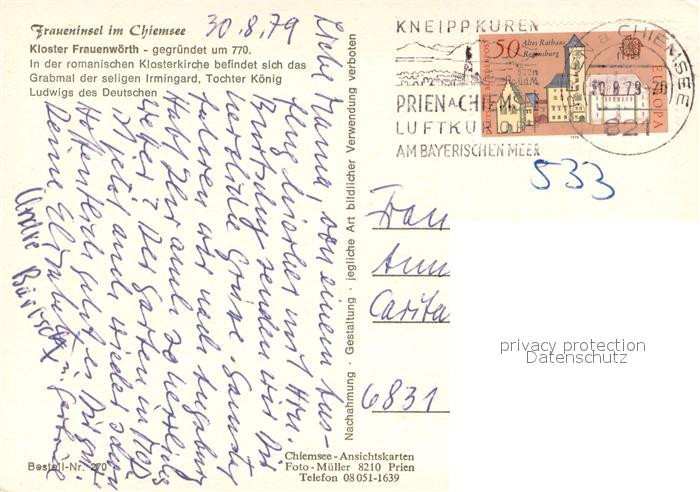 Fraueninsel im Chiemsee
Kloster Frauenwörth - gegründet um 770.
In der romanischen Klosterkirche befindet sich das
Grabmal der seligen Irmingard, Tochter König
Ludwigs des Deutschen
30.8.79
Liebe Anna, von einem Aus-
flug hierher mit Hrn.
senden wir Dir
herzliche Grüße. Samstag
fahren wir nach Augsburg
Habt Ihr auch so herrliches
Wetter? Der Garten in
ist jetzt auch wieder schön
Hoffentlich geht es Dir gut
Deine Elisabeth u. Gertrud
Nachahmung · Gestaltung · jegliche Art bildlicher Verwendung verboten
Bestell-Nr. 270
Chiemsee-Ansichtskarten
Foto-Müller 8210 Prien
Telefon 08051-1639
KNEIPPKUREN
PRIEN a CHIEMS
LUFTKU
AM BAYERISCHEN MEER
50
Altes Rathaus
Regensburg
DEUTSCHE BUNDESPOST
EUROPA
1978
a. CHIEMSEE
30.8.79-20
821
533
Frau
Caritas
6831
privacy protection
Datenschutz